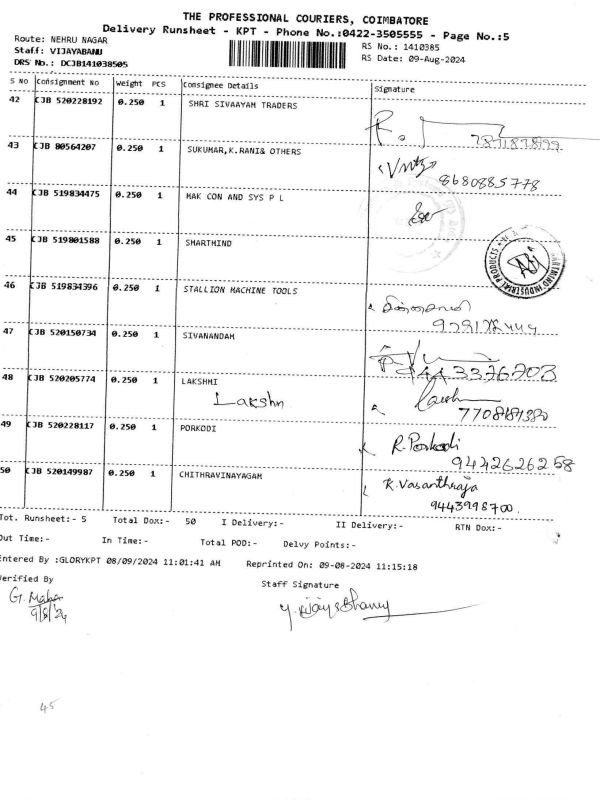 THE PROFESSIONAL COURIERS, COIMBATORE
Delivery Runsheet - KPT - Phone No.:0422-3505555 - Page No.:5
Route: NEHRU NAGAR
RS No.: 1410385
Staff: VIJAYABANU
RS Date: 09-Aug-2024
DRS No.: DCJB141038505
S NO Consignment No Weight PCS Consignee Details Signature
42 CJB 520228192 0.250 1 SHRI SIVAAYAM TRADERS
43 CJB 80564207 0.250 1 SUKUMAR,K.RANI& OTHERS
8680885778
44 CJB 519834475 0.250 1 MAK CON AND SYS P L
45 CJB 519801588 0.250 1 SHARTHIND
46 CJB 519834396 0.250 1 STALLION MACHINE TOOLS
47 CJB 520150734 0.250 1 SIVANANDAM
48 CJB 520205774 0.250 1 LAKSHMI
Lakshn
49 CJB 520228117 0.250 1 PORKODI
R. Porkodi
9442626258
50 CJB 520149987 0.250 1 CHITHRAVINAYAGAM
K. Vasanthraja
9443998700.
Tot. Runsheet:- 5 Total Dox:- 50 I Delivery:- II Delivery:- RTN Dox:-
Out Time:- In Time:- Total POD:- Delvy Points:-
Entered By :GLORYKPT 08/09/2024 11:01:41 AM Reprinted On: 09-08-2024 11:15:18
Verified By Staff Signature
9/8/24
45